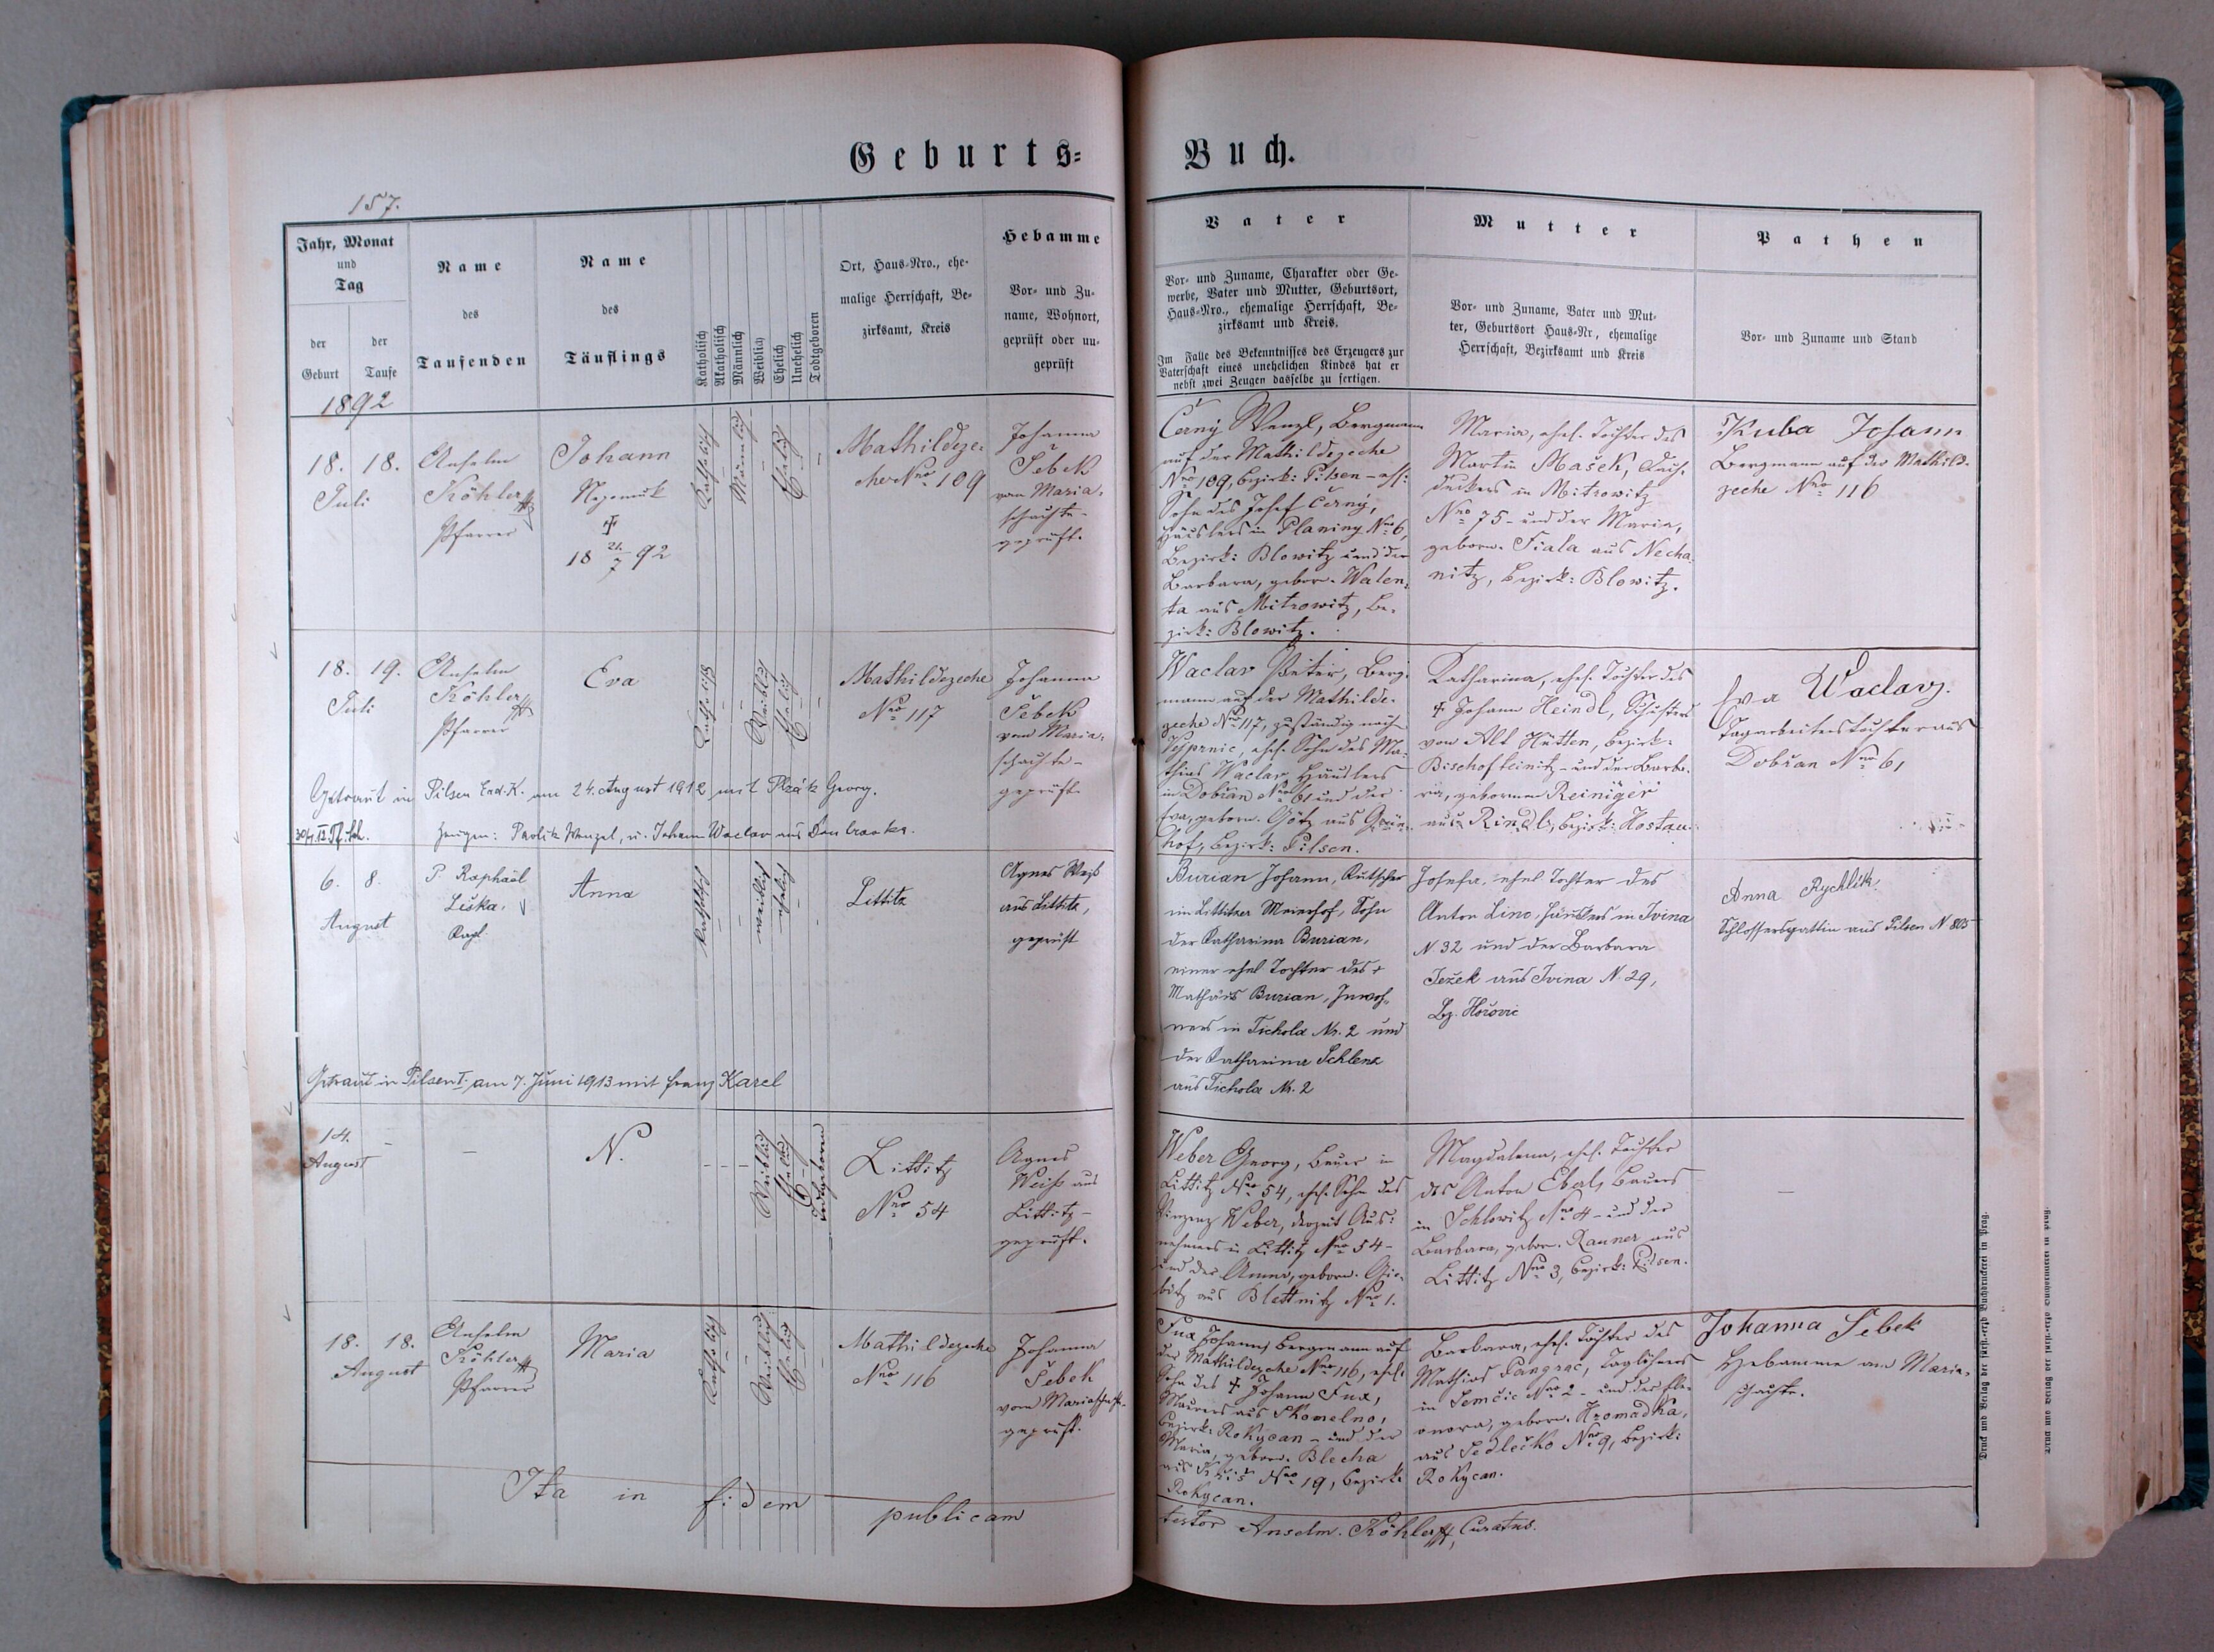 Geburts=
Buch.
157.
Jahr, Monat
und
Tag
der
Geburt
der
Taufe
Name
des
Taufenden
Name
des
Täuflings
Katholisch
Akatholisch
Männlich
Weiblich
Ehelich
Unehelich
Todtgeboren
Ort, Haus-Nro., ehe-
malige Herrschaft, Be-
zirksamt, Kreis
Hebamme
Vor- und Zu-
name, Wohnort,
geprüft oder un-
geprüft
Vater
Vor- und Zuname, Charakter oder Ge-
werbe, Vater und Mutter, Geburtsort,
Haus-Nro., ehemalige Herrschaft, Be-
zirksamt und Kreis.
Im Falle des Bekenntnisses des Erzeugers zur
Vaterschaft eines unehelichen Kindes hat er
nebst zwei Zeugen dasselbe zu fertigen.
Mutter
Vor- und Zuname, Vater und Mut-
ter, Geburtsort Haus-Nr., ehemalige
Herrschaft, Bezirksamt und Kreis
Pathen
Vor- und Zuname und Stand
1892
18. 18.
Juli
Anselm
Köhler
Pfarrer
Johann
Nepomuk
†
18 21/7 92
Katholisch
Männlich
Ehelich
Mathildeze-
che Nro 109
Johanna
Šebek
vom Maria-
schachte -
geprüft.
Černý Wenzl, Bergmann
auf der Mathildezeche
Nro 109, Bezirk: Pilsen - ehl:
Sohn des Josef Černý,
Häuslers in Planiny Nro 6,
Bezirk: Blowitz und der
Barbara, gebor. Walen-
ta aus Mitrowitz, Be-
zirk: Blowitz.
Maria, ehel. Tochter des
Martin Mašek, Dach-
deckers in Mitrowitz
Nro 75 - und der Maria,
geborn. Fiala aus Necha-
nitz, Bezirk: Blowitz.
Kuba Johann
Bergmann auf der Mathild-
zeche Nro 116
18. 19.
Juli
Anselm
Köhler
Pfarrer
Eva
Katholisch
Weiblich
Ehelich
Mathildezeche
Nro 117
Johanna
Šebek
vom Maria-
schachte -
geprüft
Waclav Peter, Berg-
mann auf der Mathilde-
zeche Nro 117, zuständig nach
ehel. Sohn des Ma-
thias Waclav, Häuslers
in Dobřan Nro 61 und der
Eva, geborn. Götz aus Grün-
hof, Bezirk: Pilsen.
Katharina, ehel. Tochter des
† Johann Heindl, Schusters
von Alt Hütten, Bezirk:
Bischofteinitz - und der Barba-
ra, gebornen Reiniger
aus Rindl, Bezirk: Hostau.
Eva Waclav.
Tagarbeiterstochter aus
Dobřan Nro 61
Getraut in Pilsen Erzd. K. am 24. August 1912 mit Plzák Georg.
Zeugen: Pavlik Wenzel, u. Johann Waclav aus
6. 8.
August
P. Raphaël
Liška.
Kapl.
Anna
Katholisch
weiblich
ehelich
Littitz
Agnes Weiß
aus Littitz,
geprüft
Burian Johann, Kutscher
im Littitzer Meierhof, Sohn
der Katharina Burian,
einer ehel Tochter des †
Mathäus Burian, Inwoh-
ners in Tichola Nr. 2 und
der Katharina Schlenz
aus Tichola Nr. 2
Josefa, ehel Tochter des
Anton Linc, Häuslers in Ivina
N 32 und der Barbara
Ježek aus Ivina N. 29,
Bz. Hořovic
Anna Rychlik.
Schlossersgattin aus Pilsen N 805
Getraut in Pilsen I. am 7. Juni 1913 mit Franz Karel
14.
August
N.
Weiblich
Ehelich
Todtgeboren
Littitz
Nro 54
Agnes
Weiß aus
Littitz -
geprüft.
Weber Georg, Bauer in
Littitz Nro 54, ehel. Sohn des
Vinzenz Weber, derzeit Aus-
nehmers in Littitz Nro 54 -
und der Anna, geborn.
aus Blettnitz Nro 1.
Magdalena, ehel. Tochter
des Anton Eberl, Bauers
in Schlowitz Nro 4 - und der
Barbara, gebor. Ranner aus
Littitz Nro 3, Bezirk: Pilsen.
18. 18.
August
Anselm
Köhler
Pfarrer
Maria
Katholisch
Weiblich
Ehelich
Mathildezeche
Nro 116
Johanna
Šebek
vom Mariaschacht-
geprüft.
Fux Johann, Bergmann auf
der Mathildezeche Nro 116, ehel.
Sohn des † Johann Fux,
Maurers aus Skomelno,
Bezirk: Rokycan - und der
Maria, geborn. Blecha
aus Nro 19, Bezirk:
Rokycan.
Barbara, ehel. Tochter des
Mathias Pangrac, Taglöhners
in Semčic Nro 2 - und der Ele-
onora, geborn. Hromadka,
aus Sedlečko Nro 9, Bezirk:
Rokycan.
Johanna Šebek
Hebamme am Maria-
schachte.
Ita in fidem publicam
testor Anselm. Köhler, Curatus.
Druck und Verlag der fürst.-erzb Buchdruckerei in Prag.
Druck und Verlag der fürst.-erzb Buchdruckerei in Prag.